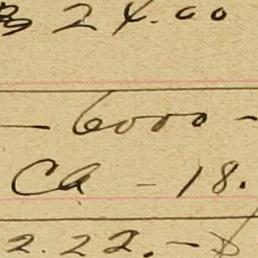 24.00
- 6000 -
Ca - 18.
2.22. -